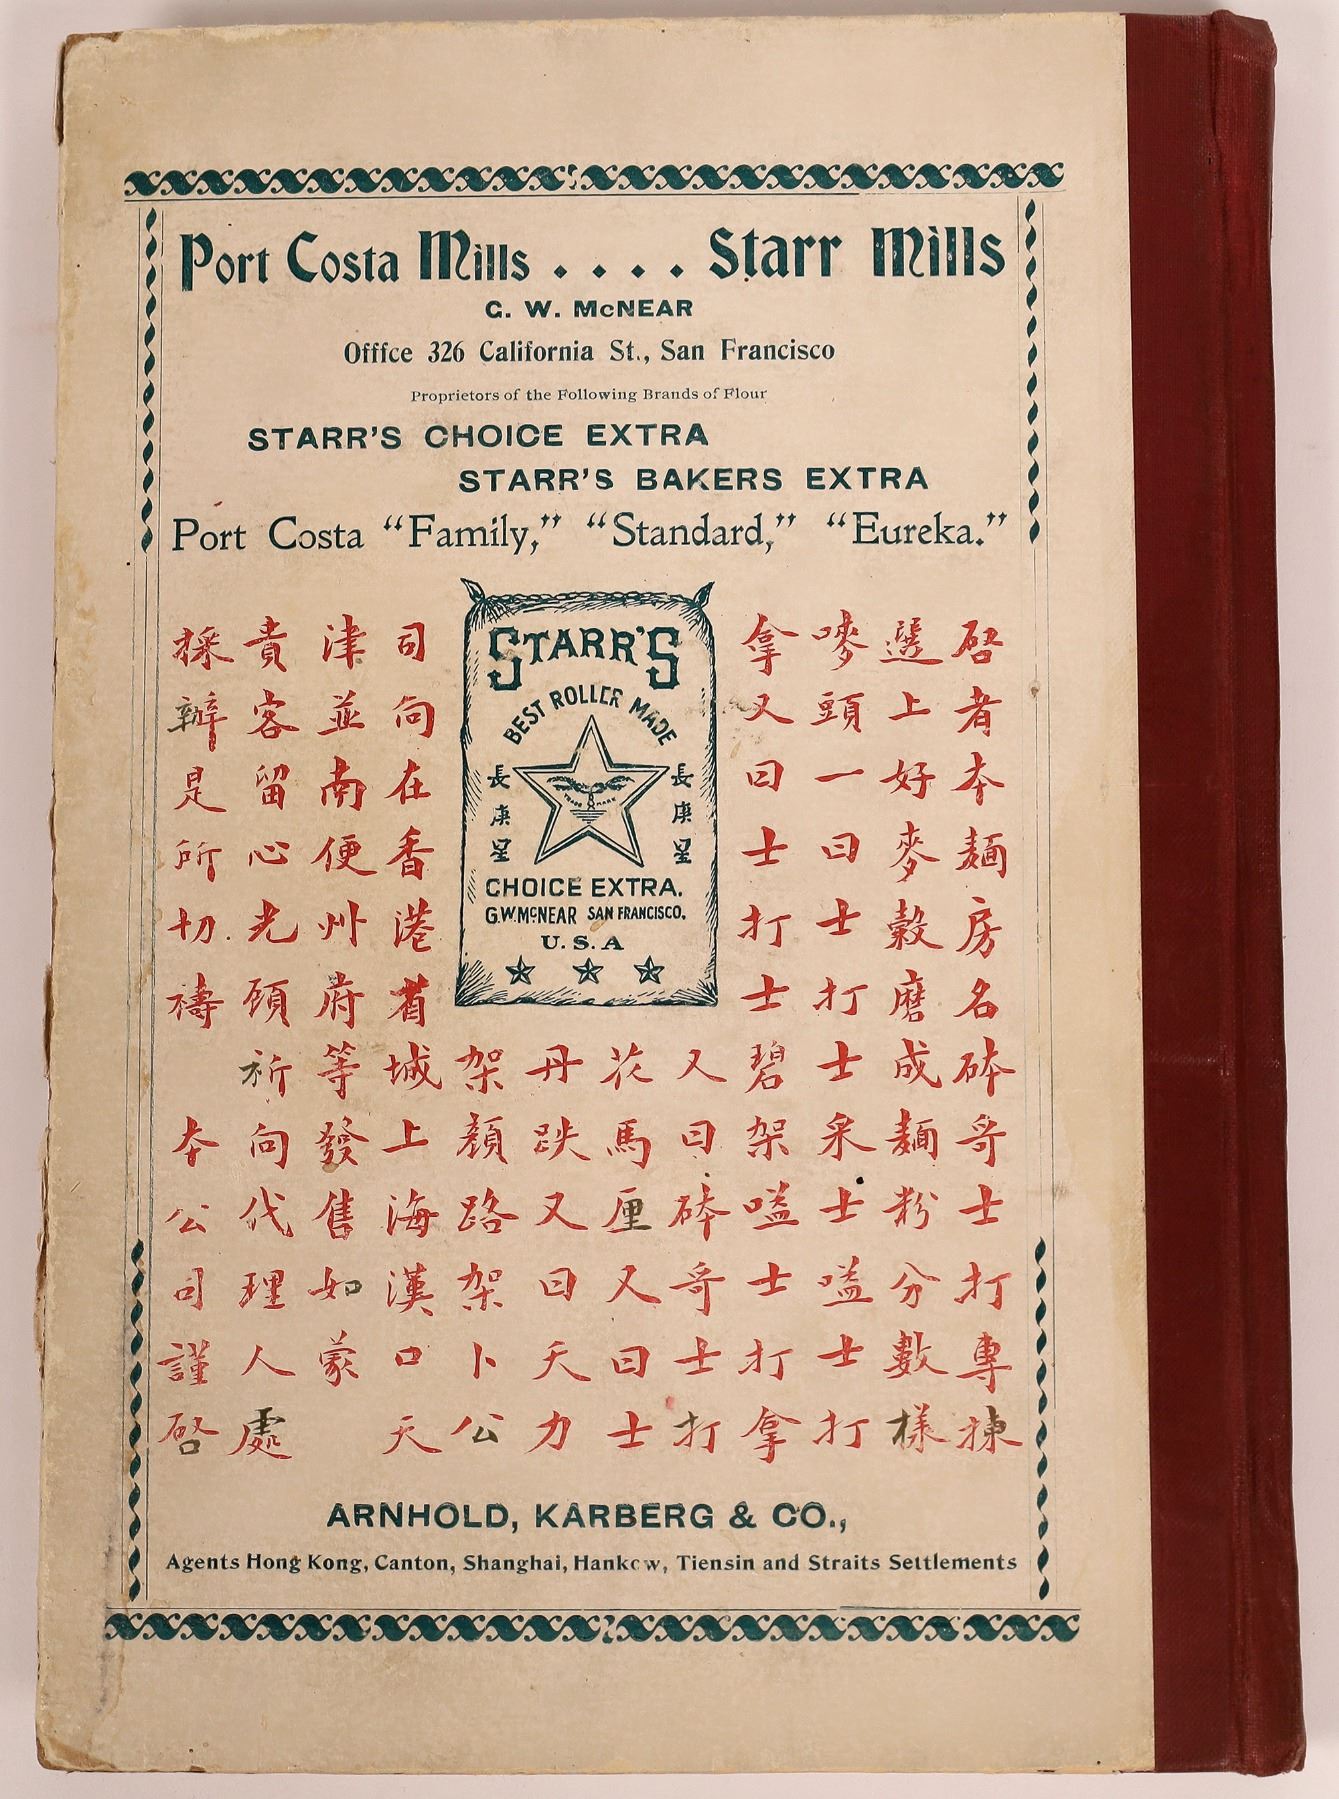 Port Costa Mills .... Starr Mills
G. W. McNEAR
Offfce 326 California St., San Francisco
Proprietors of the Following Brands of Flour
STARR'S CHOICE EXTRA
STARR'S BAKERS EXTRA
Port Costa “Family,” “Standard,” “Eureka.”
啓者本麵房名砵哥士打專揀
選上好麥穀磨成麵粉分數樣
嘜頭一曰士打士采士嗌士打
拿又曰士打士碧架嗌士打拿
又曰砵哥士打
花馬厘又曰士
丹跌又曰天力
架顏路架卜公
司向在香港省城上海漢口天
津並南便州府等發售如蒙
貴客留心光顧祈向代理人處
採辦是所切禱 本公司謹啓
STARR'S
BEST ROLLER MADE
長庚星
長庚星
TRADE MARK
CHOICE EXTRA.
G.W.McNEAR SAN FRANCISCO.
U.S.A
ARNHOLD, KARBERG & CO.,
Agents Hong Kong, Canton, Shanghai, Hankow, Tiensin and Straits Settlements